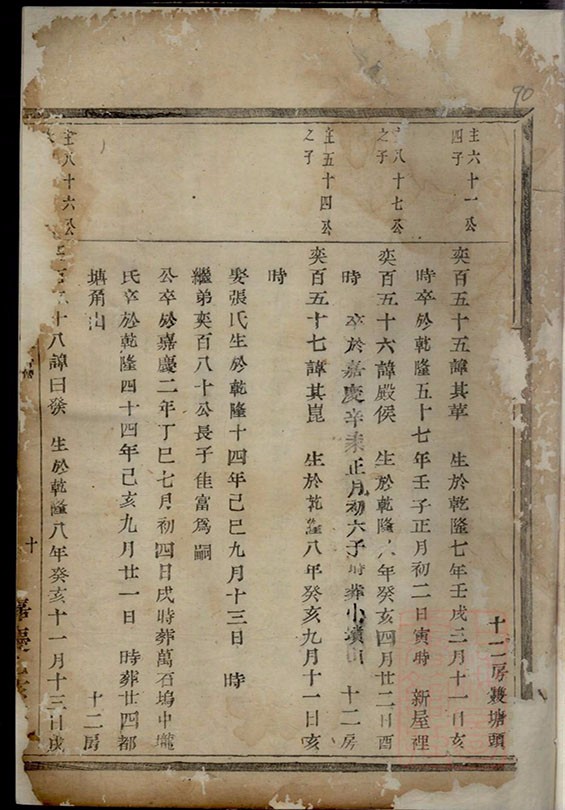 90
十二房雙塘頭
圭六十一公
四子
奕百五十五諱其華　生於乾隆七年壬戌三月十一日亥
時卒於乾隆五十七年壬子正月初二日寅時　新屋裡
八十七公
之子
奕百五十六諱殿侯　生於乾隆八年癸亥四月廿二日酉
時　卒於嘉慶辛未正月初六子時葬小墳山　十二房
圭五十四公
之子
奕百五十七諱其崑　生於乾隆八年癸亥九月十一日亥
時
娶張氏生於乾隆十四年己巳九月十三日　時
繼弟奕百八十公長子佳富為嗣
公卒於嘉慶二年丁巳七月初四日戌時葬萬石塢中壠
氏卒於乾隆四十四年己亥九月廿一日　時葬廿四都
塘角山　十二房
圭八十六公
百五十八諱曰發　生於乾隆八年癸亥十一月十三日戌
十
嘉慶